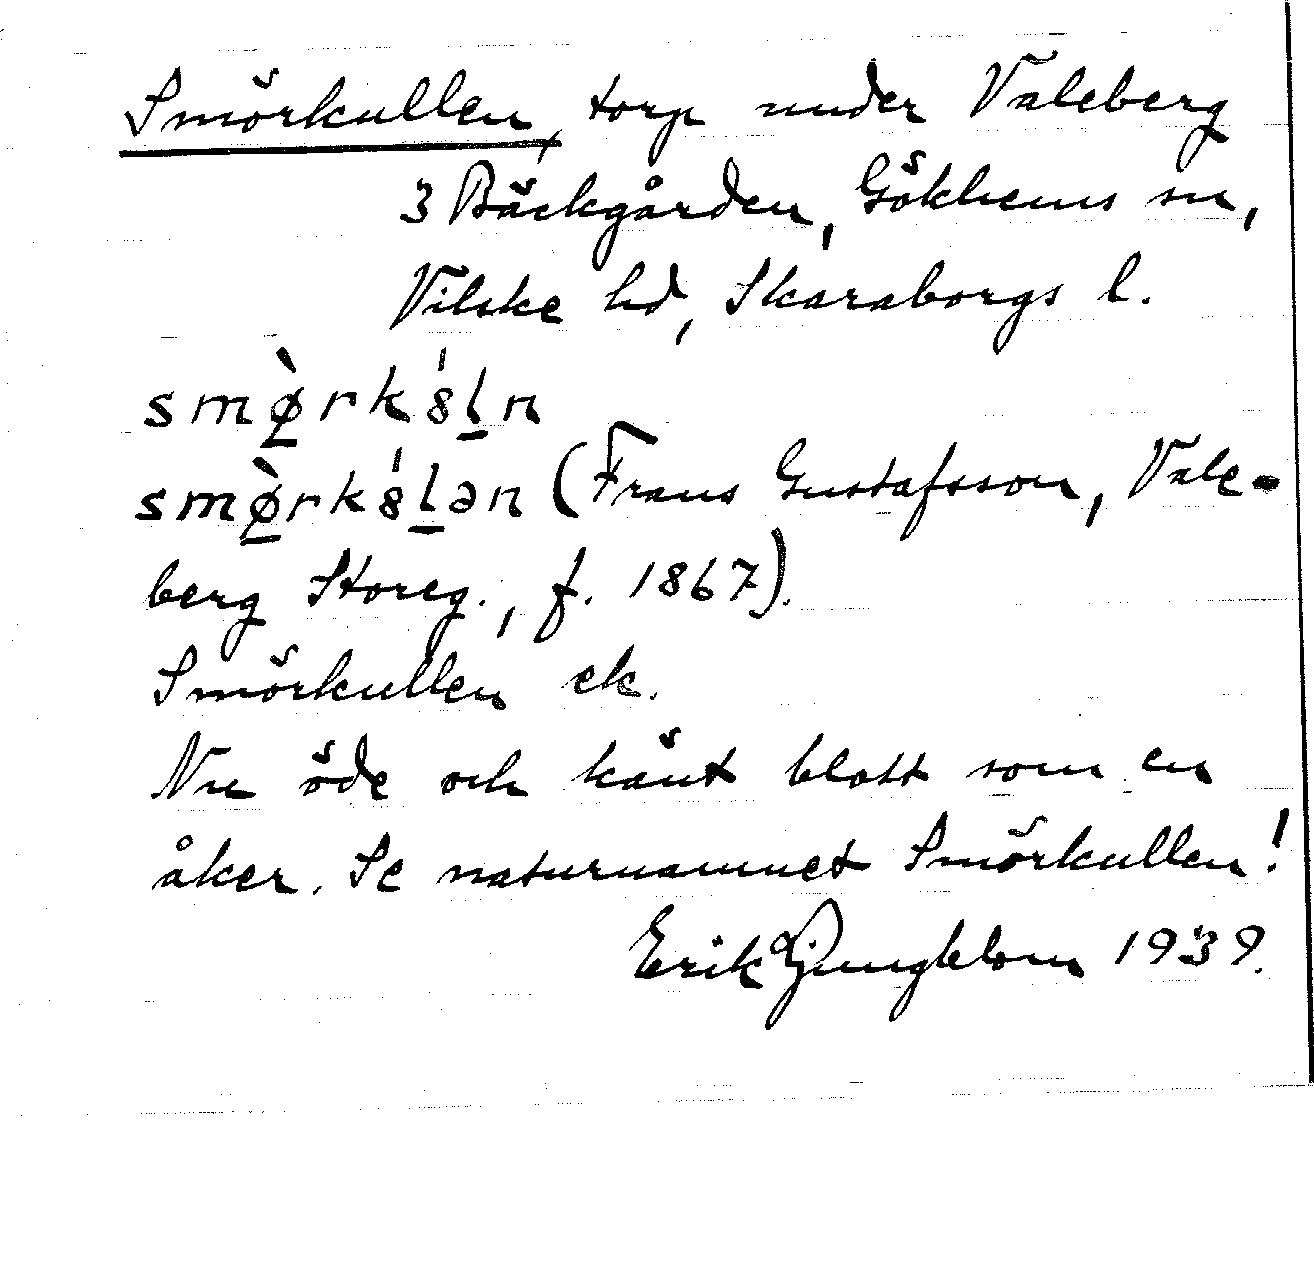 Smörkullen, torp under Valeberg
3 Bäckgården, Gökhems sn,
Vilske hd, Skaraborgs l.
smø̱̀rk8́ḻn
smø̱̀rk8́ḻən (Frans Gustafsson, Vale-
berg Storeg., f. 1867).
Smörkullen ek.
Nu öde och känt blott som en
åker. Se naturnamnet Smörkullen!
Erik Ljungblom 1939.